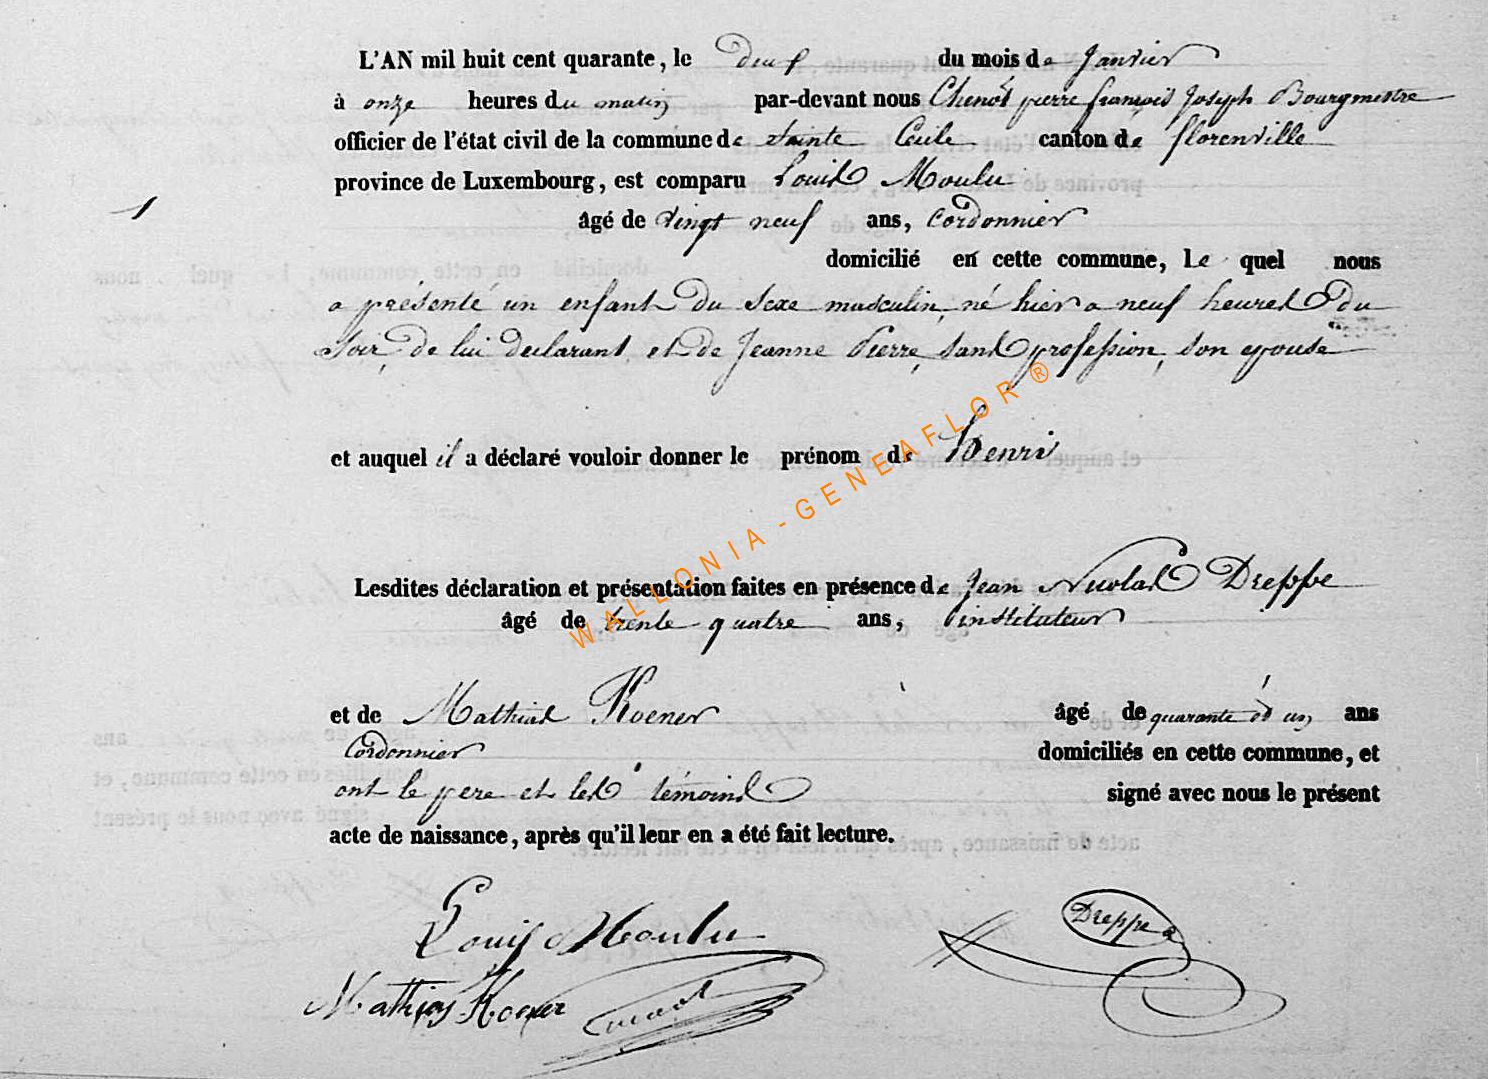 L'AN mil huit cent quarante, le deux du mois de Janvier
à onze heures du matin par-devant nous Chenot pierre françois Joseph Bourgmestre
officier de l'état civil de la commune de Sainte Cecile canton de florenville
province de Luxembourg, est comparu Louis Moulu
1
âgé de vingt neuf ans, Cordonnier
domicilié en cette commune, le quel nous
a présenté un enfant du Sexe masculin, né hier a neuf heures du
Soir, de lui declarant, et de Jeanne Pierre, sans profession, son epouse
et auquel il a déclaré vouloir donner le prénom de Henri
WALLONIA-GENEAFLOR ®
Lesdites déclaration et présentation faites en présence de Jean Nicolas Dreppe
âgé de trente quatre ans, instituteur
et de Mathias Koener âgé de quarante et un ans
Cordonnier domiciliés en cette commune, et
ont le pere et les témoins signé avec nous le présent
acte de naissance, après qu'il leur en a été fait lecture.
Louis Moulu
Dreppe
Mathias Koener